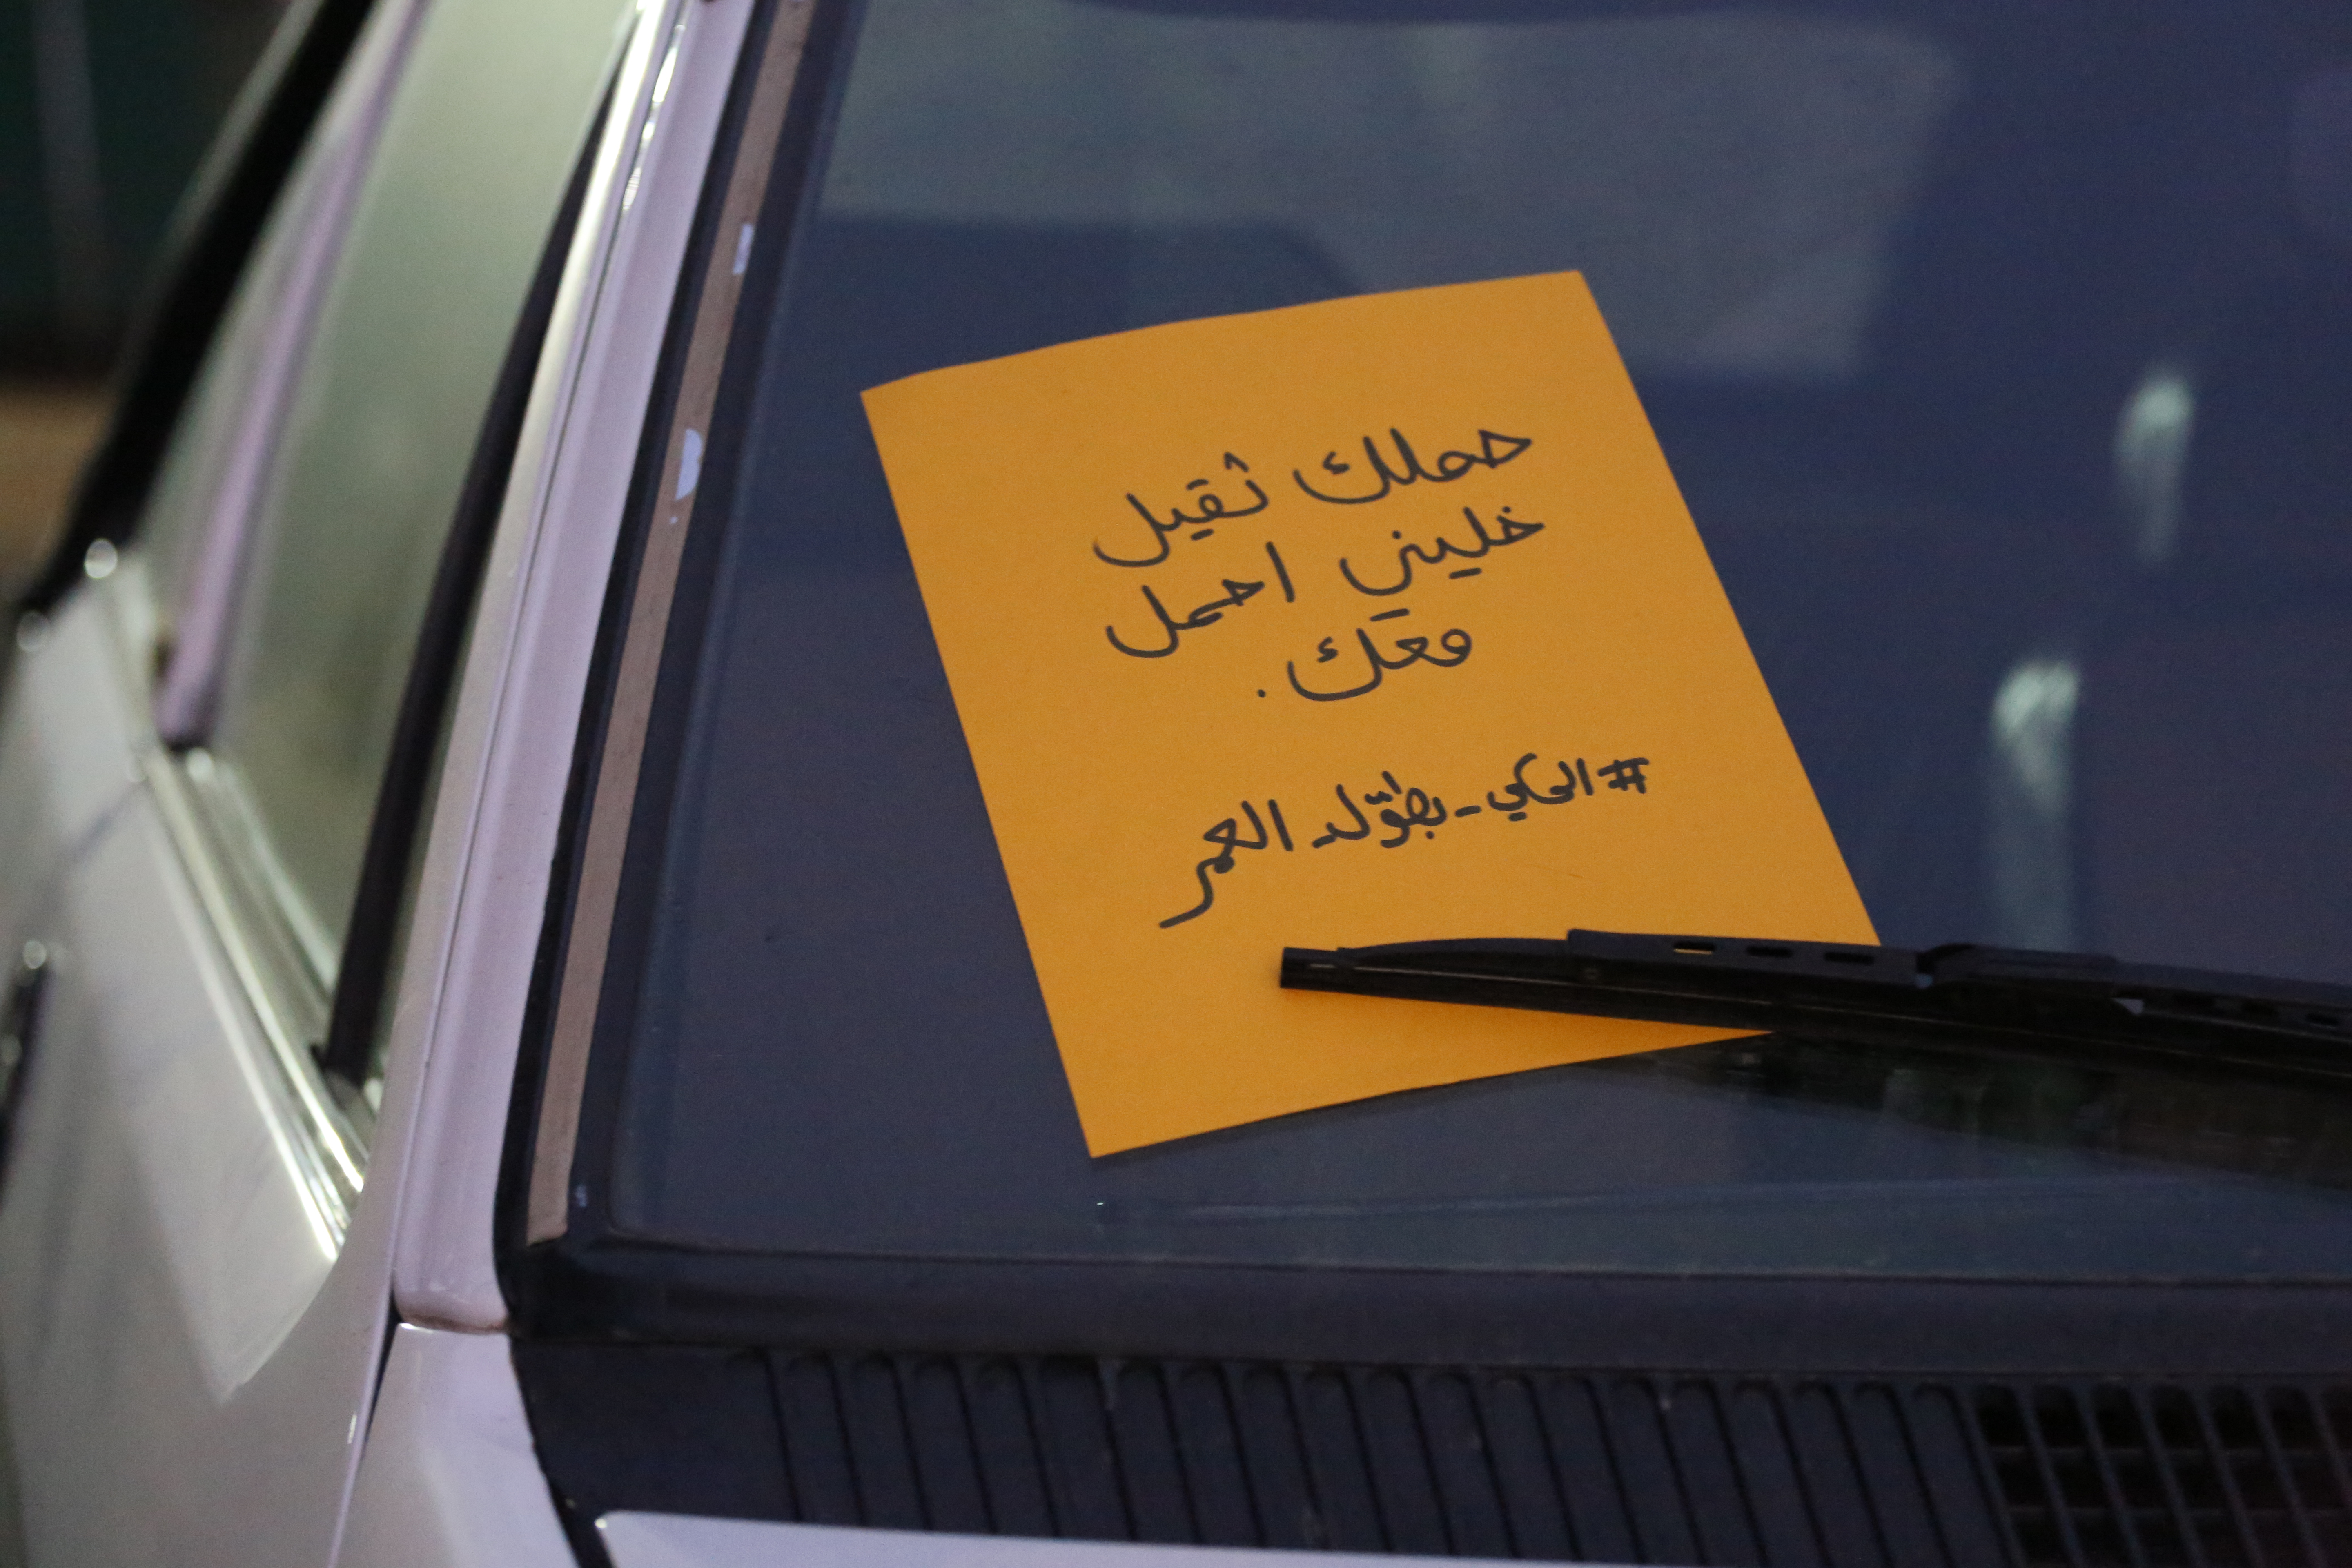 حملك ثقيل
خليني احمل
معك.
#الحكي_بطوّل_العمر